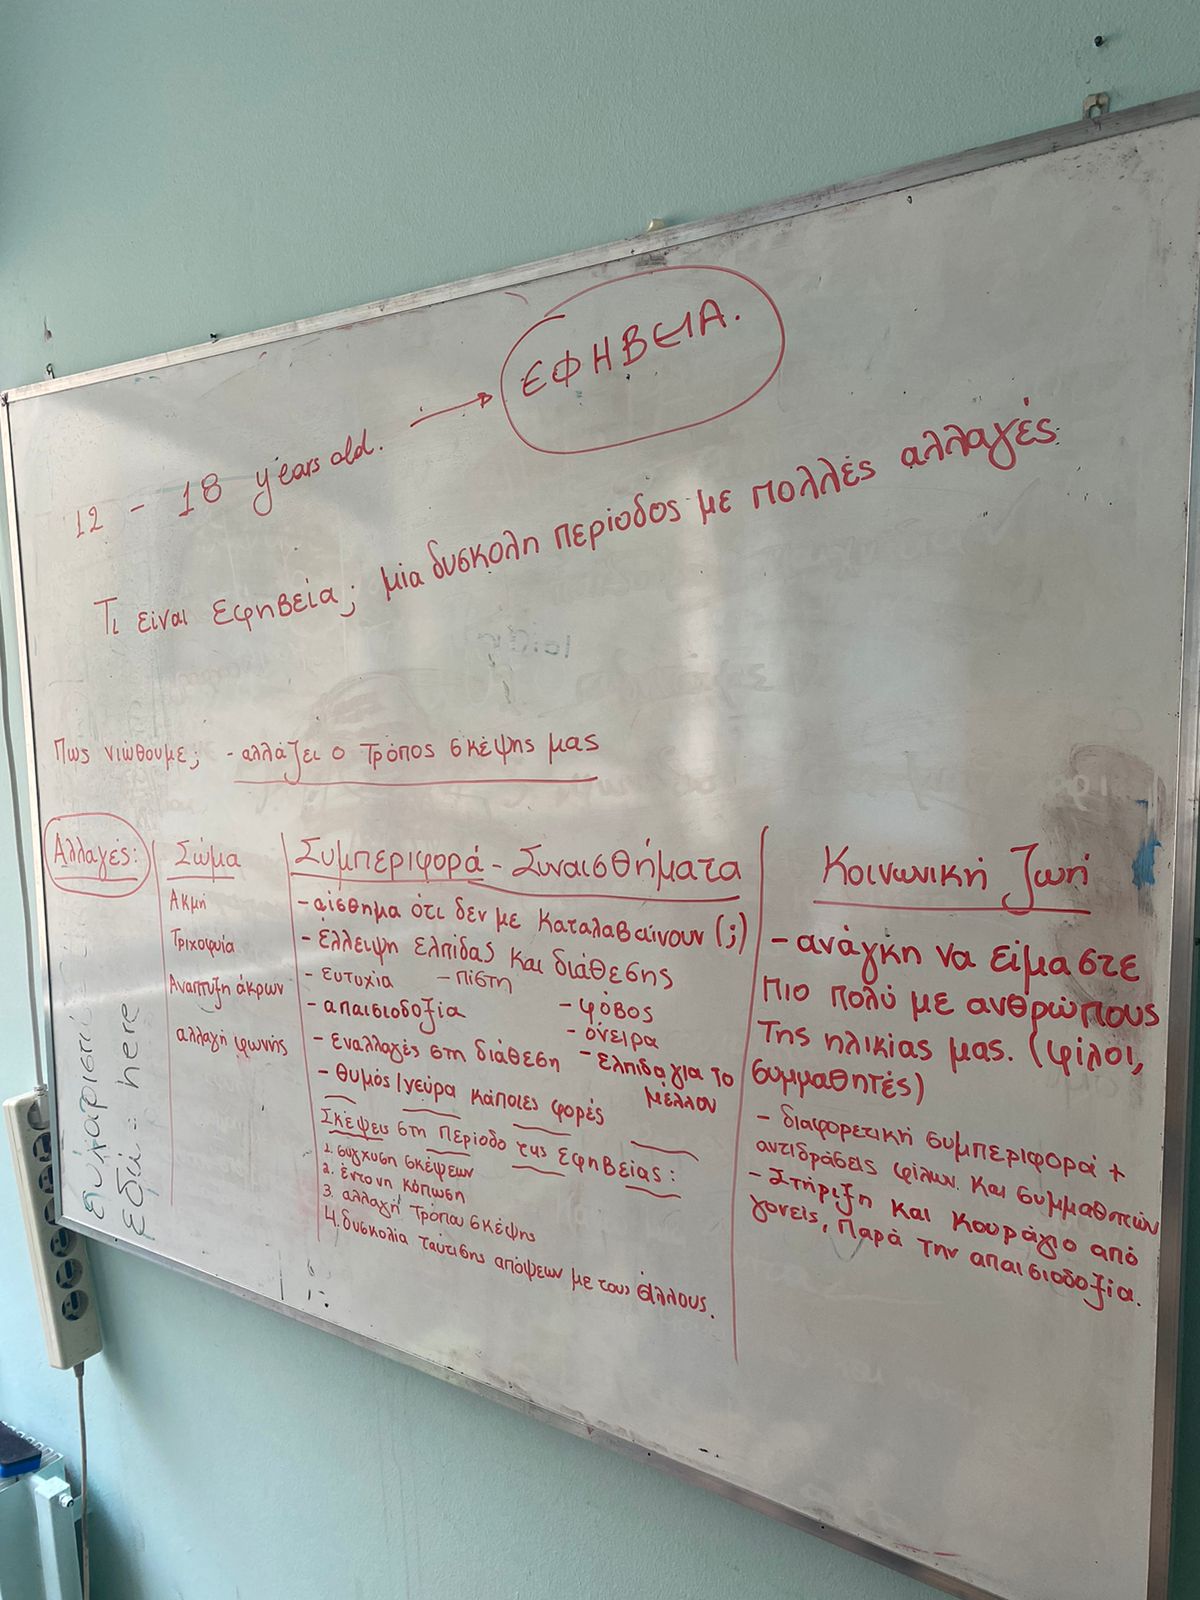 ΕΦΗΒΕΙΑ.
12 - 18 years old. →
Τι είναι εφηβεία; μια δυσκολη περίοδος με πολλές αλλαγές
Πως νιώθουμε; - αλλάζει ο τρόπος σκέψης μας
Αλλαγές:
Σώμα
Ακμή
Τριχοφυία
Αναπτυξη άκρων
αλλαγή φωνής
Συμπεριφορά - Συναισθήματα
- αίσθημα ότι δεν με καταλαβαίνουν (;)
- έλλειψη ελπίδας και διάθεσης
- ευτυχία - πίστη
- απαισιοδοξία - φόβος
- όνειρα
- εναλλαγές στη διάθεση - ελπίδα για το μέλλον
- θυμός / νεύρα κάποιες φορές
Σκέψεις στη περίοδο της εφηβείας:
1. σύγχυση σκέψεων
2. έντονη κόπωση
3. αλλαγή τρόπου σκέψης
4. δυσκολία ταύτισης απόψεων με τους άλλους.
Κοινωνική ζωή
- ανάγκη να είμαστε
πιο πολύ με ανθρώπους
της ηλικίας μας. (φίλοι,
συμμαθητές)
- διαφορετική συμπεριφορά +
αντιδράσεις φίλων και συμμαθητών
- Στήριξη και κουράγιο από
γονείς, παρά την απαισιοδοξία.
ευχαριστώ
εδώ = here